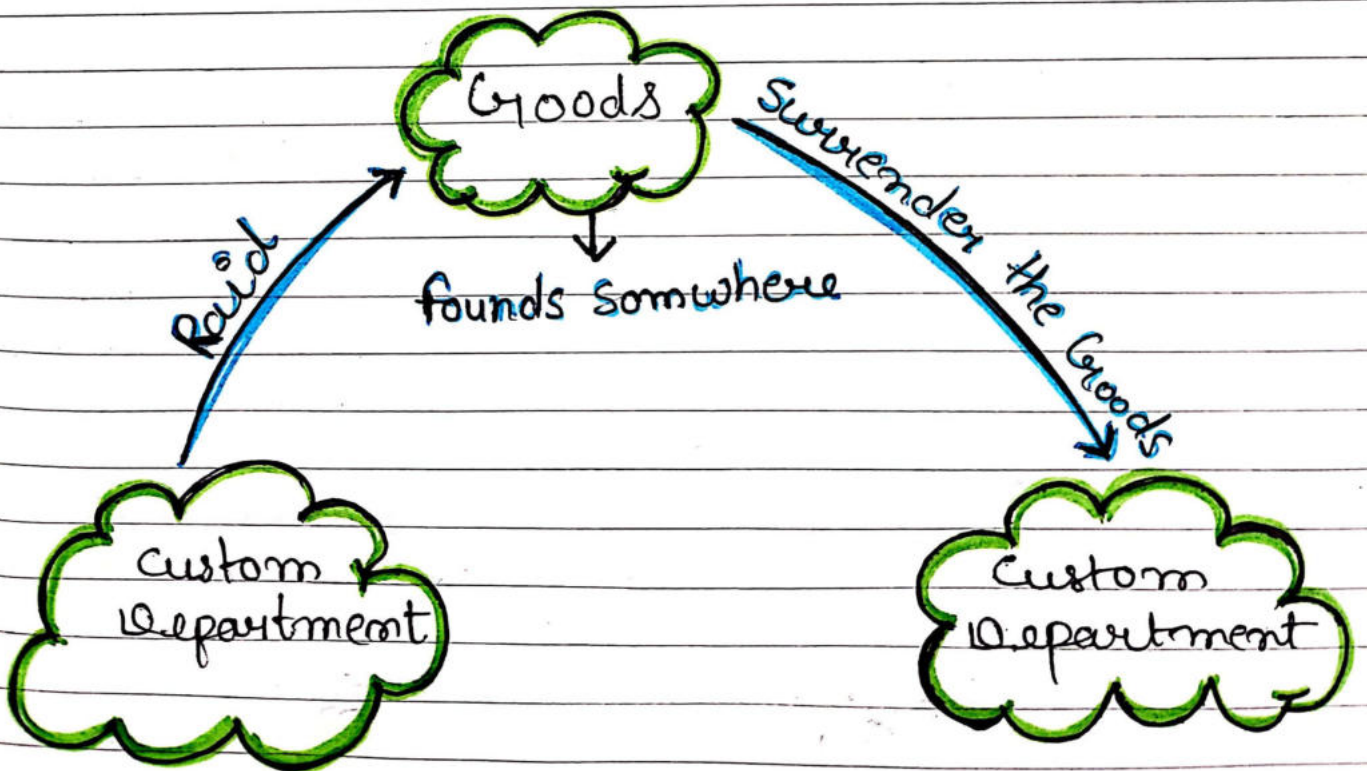 Goods
Surrender the Goods
Raid
founds Somwhere
Custom
Department
Custom
Department